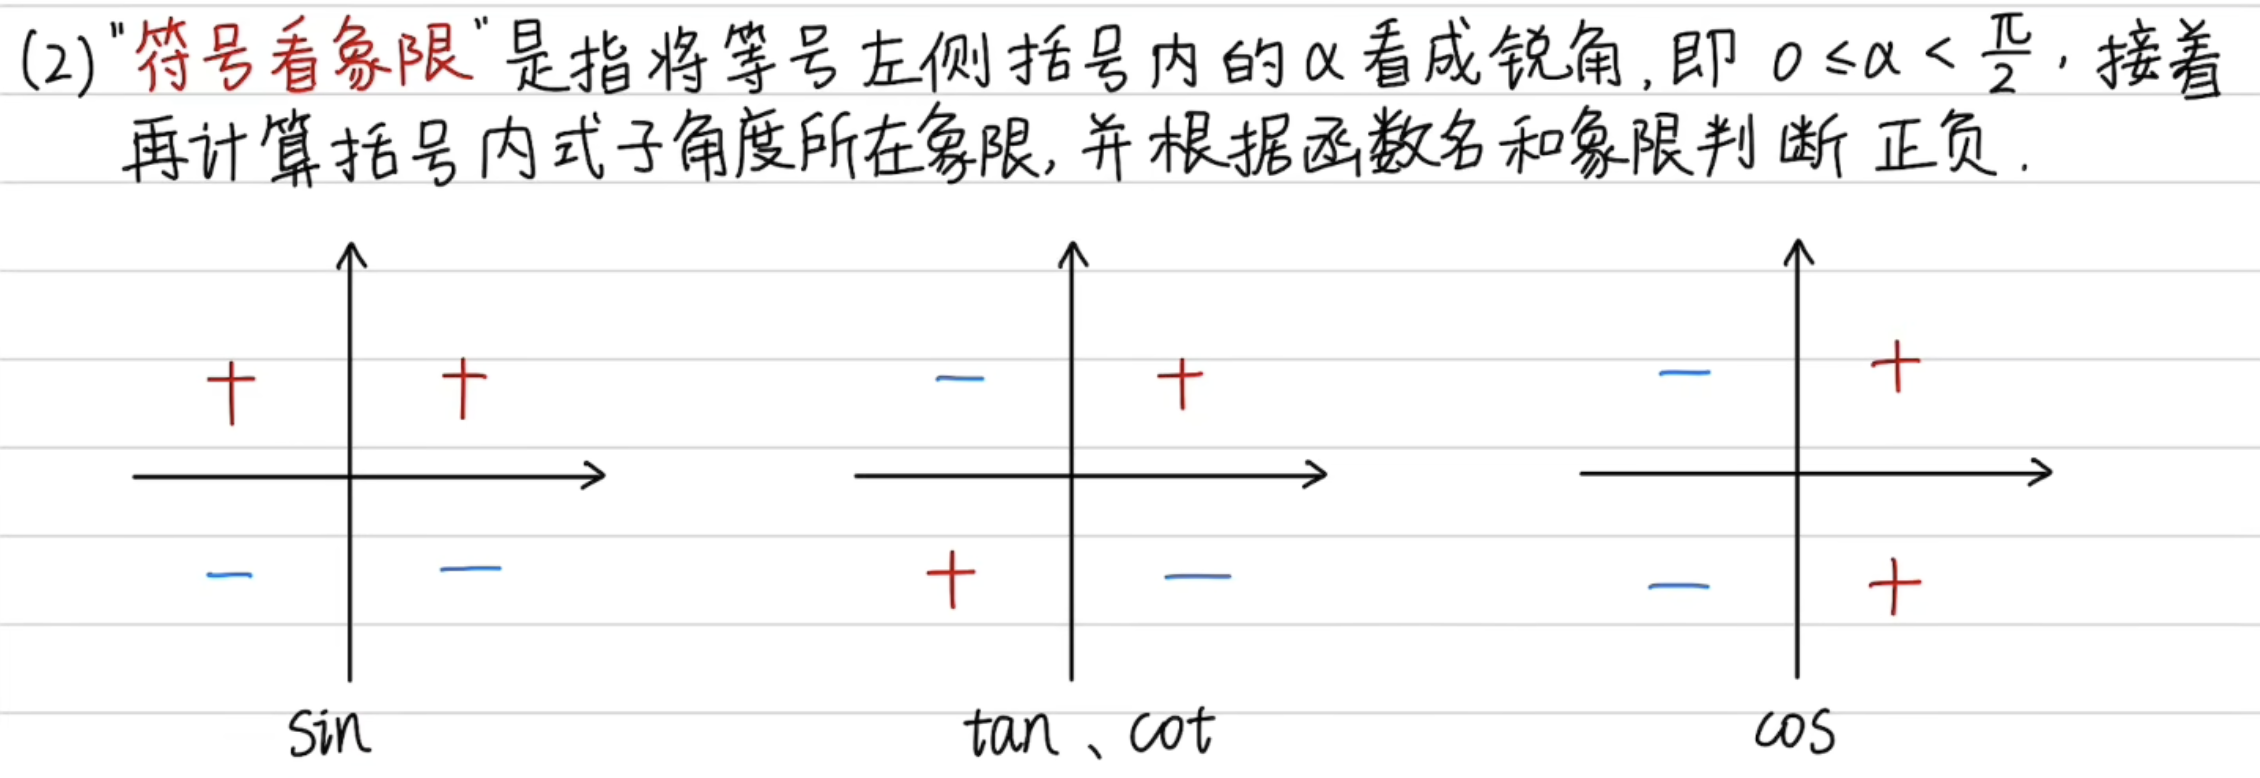 (2)"符号看象限"是指将等号左侧括号内的α看成锐角,即 0≤α<π/2,接着
再计算括号内式子角度所在象限,并根据函数名和象限判断正负.
+ + - + - +
- - + - - +
sin tan、cot cos